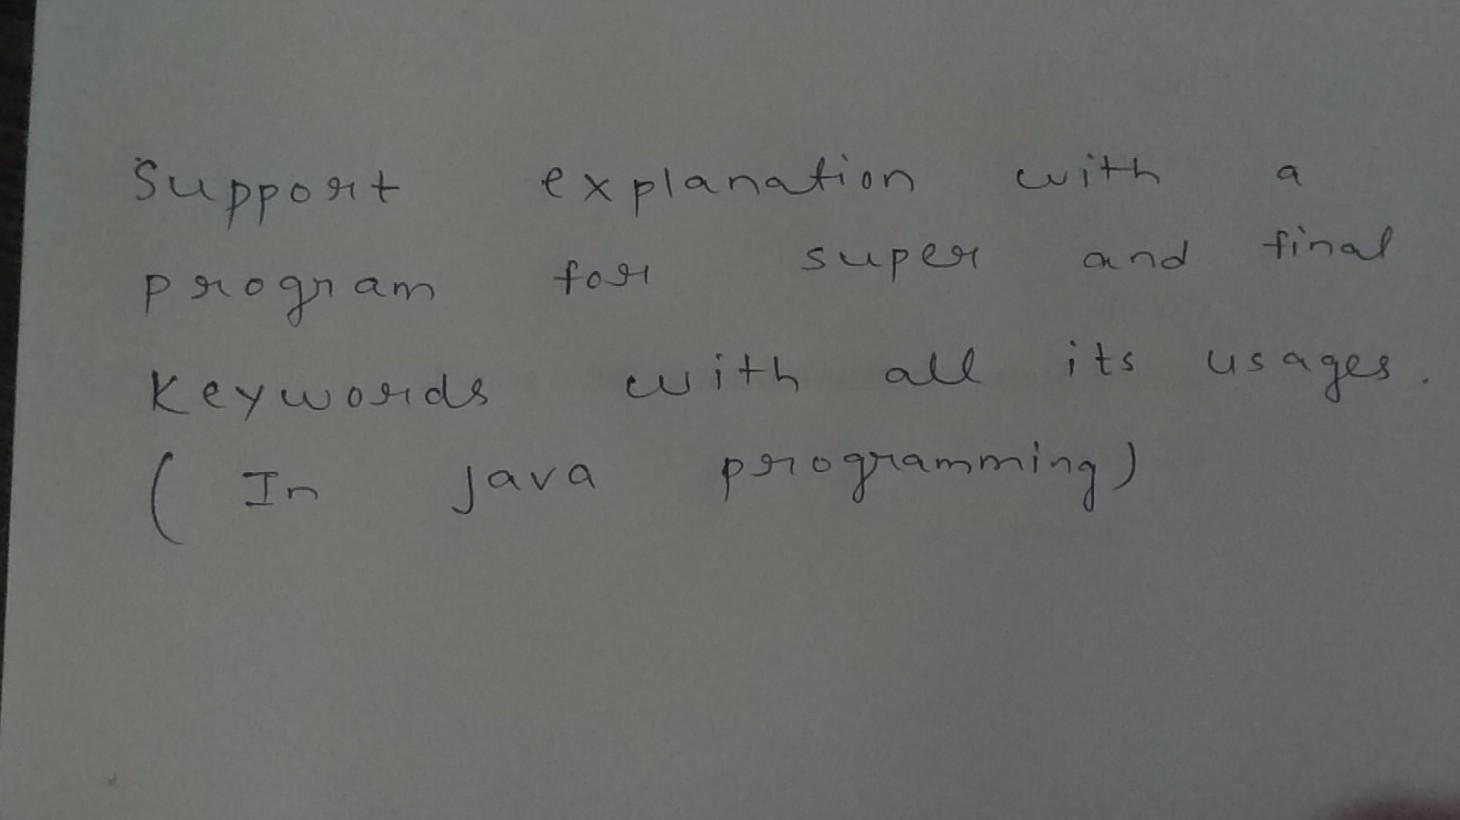 Support explanation with a
program for super and final
Keywords with all its usages.
( In Java programming)